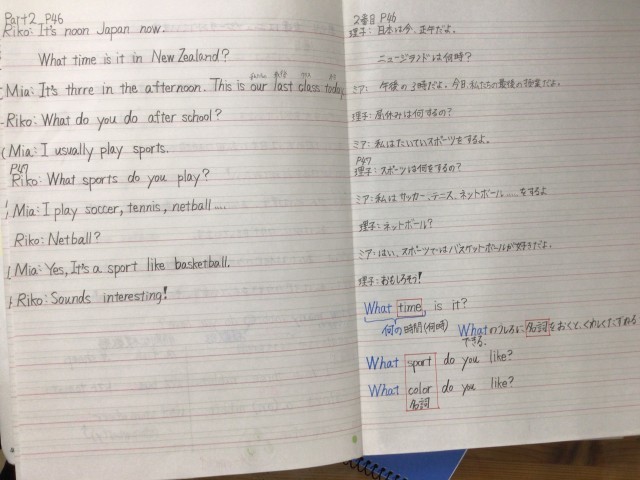 Part2 P46
Riko: It's noon Japan now.
What time is it in New Zealand?
Mia: It's thrre in the afternoon. This is our last class today.
Riko: What do you do after school?
Mia: I usually play sports.
P47
Riko: What sports do you play?
Mia: I play soccer, tennis, netball....
Riko: Netball?
Mia: Yes, It's a sport like basketball.
Riko: Sounds interesting!
2番目 P46
理子: 日本は今、正午だよ。
ニュージランドは何時?
ミア: 午後の3時だよ。今日、私たちの最後の授業だよ。
理子: 昼休みは何するの?
ミア: 私はたいていスポーツをするよ。
P47
理子: スポーツは何をするの?
ミア: 私はサッカー、テニス、ネットボール.....をするよ
理子: ネットボール?
ミア: はい、スポーツではバスケットボールが好きだよ。
理子: おもしろそう!
What time, is it?
何の時間(何時) Whatのうしろに名詞をおくと、くわしくたずねる
できる.
What sport do you like?
What color do you like?
名詞